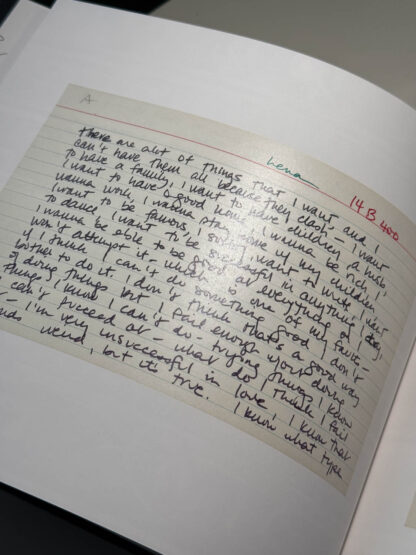 A
Lena
14 B 400
there are alot of things that I want and I
can't have them all because they clash – I want
to have a family, I want to have children,
I want to have a good home, I wanna be rich,
wanna work, I wanna stay home w/ my children,
I want to be famous, I want to write, I want
to dance, I want to be successful in anything I try,
I wanna be able to be good at everything
won't attempt it, which is one of my faults –
if I think I can't do something good I don't
bother to do it. I don't think that's a good way
of doing things but I fail enough doing
things I know I can't do – trying things I know
can't succeed at – what do I think I fail
– I'm very unsuccessful in love, I know that
weird, but it's true. I know what type